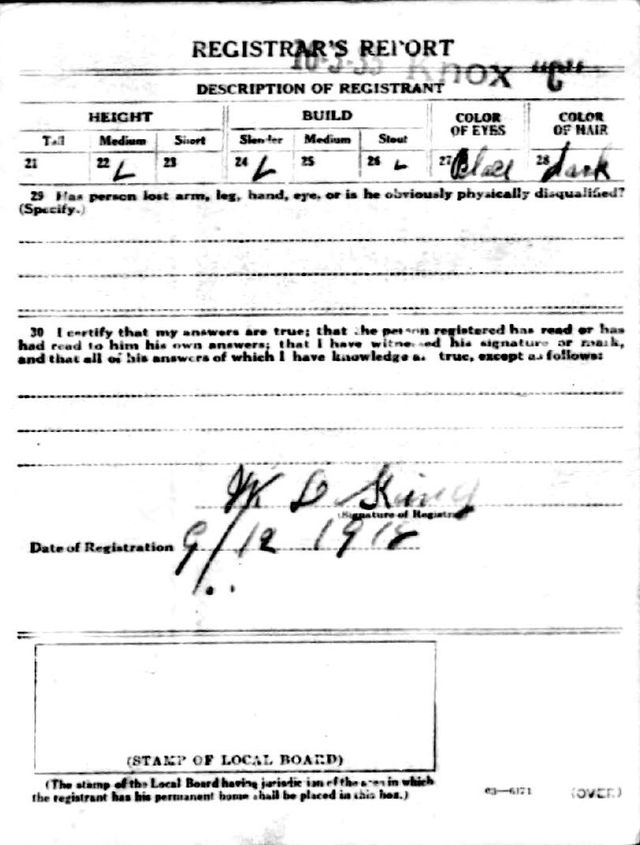 REGISTRAR'S REPORT
10-3-35 Knox "C"
DESCRIPTION OF REGISTRANT
HEIGHT BUILD COLOR OF EYES COLOR OF HAIR
Tall Medium Short Slender Medium Stout
21 22 L 23 24 L 25 26 L 27 28 Dark
29 Has person lost arm, leg, hand, eye, or is he obviously physically disqualified?
(Specify.)
30 I certify that my answers are true; that the person registered has read or has
had read to him his own answers; that I have witnessed his signature or mark,
and that all of his answers of which I have knowledge are true, except as follows:
W D King
(Signature of Registrar)
Date of Registration 9/12 1918
(STAMP OF LOCAL BOARD)
(The stamp of the Local Board having jurisdiction of the area in which
the registrant has his permanent home shall be placed in this box.)
03—6171 (OVER)